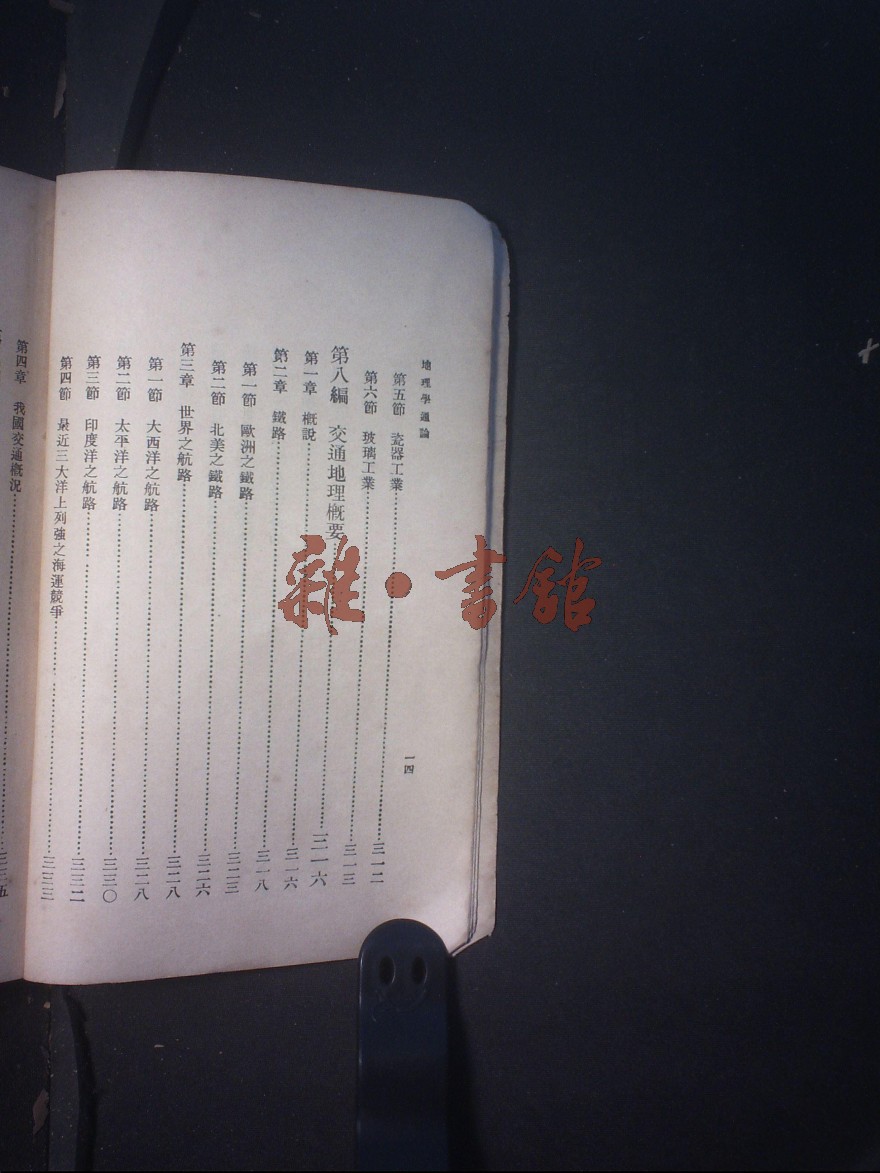 地理學通論
一四
第五節　瓷器工業……三一二
第六節　玻璃工業……三一三
第八編　交通地理概要……三一六
第一章　概說……三一六
第二章　鐵路……三一八
第一節　歐洲之鐵路……三二三
第二節　北美之鐵路……三二六
第三章　世界之航路……三二八
第一節　大西洋之航路……三二八
第二節　太平洋之航路……三三〇
第三節　印度洋之航路……三三二
第四節　最近三大洋上列強之海運競爭……三三三
第四章　我國交通概況……三三五
雜·書館